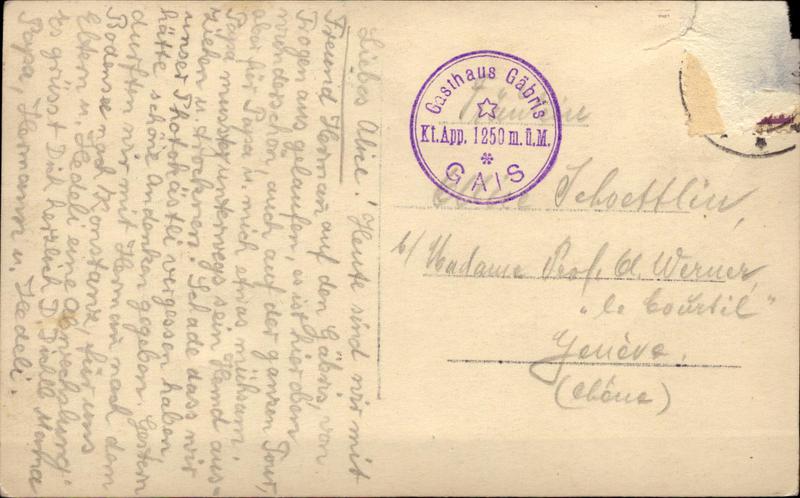 Liebes Alice! Heute sind wir mit
Freund Hermann auf den Gäbris, von
Trogen aus gelaufen, es ist hier oben
wunderschön auch auf der ganzen Tour,
aber für Papa u. mich etwas mühsam.
Papa musste unterwegs sein Hemd aus-
ziehen u. trocknen. Schade dass wir
unser Photokästli vergessen haben
hätte schöne Andenken gegeben. Gestern
durften wir mit Hermann nach dem
Bodensee nach Konstanz, für uns
Eltern u. Hedeli eine Abwechslung.
Es grüsst Dich herzlich D. Mama
Papa, Hermann u. Hedeli.
Gasthaus Gäbris
Kt. App. 1250 m. ü. M.
GAIS
Fräulein
Alice Schoettlin,
b/ Madame Prof. A. Werner,
"le Courtil"
Genève.